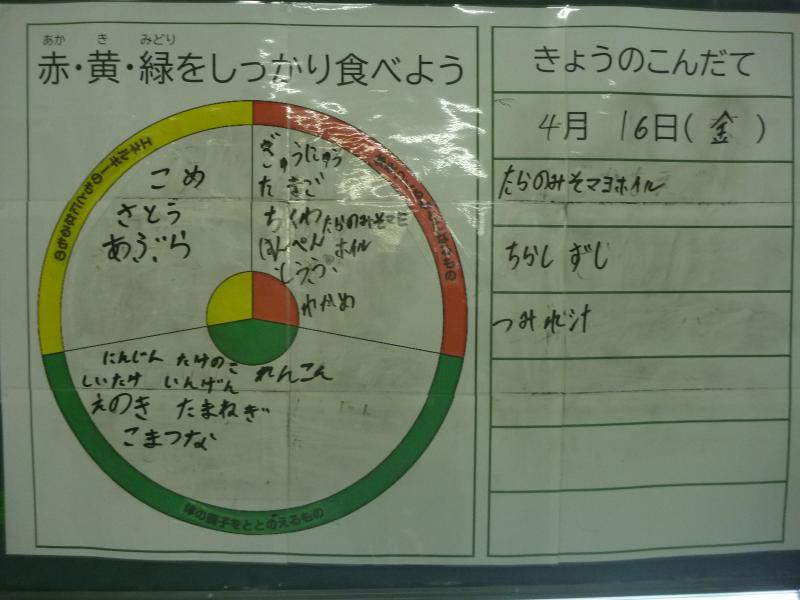 あか き みどり
赤・黄・緑をしっかり食べよう
エネルギーのもとになるもの
こめ
さとう
あぶら
ぎゅうにゅう
たまご
ちくわ たらのみそマヨ
はんぺん ホイル
とうふ
わかめ
にんじん たけのこ れんこん
しいたけ いんげん
えのき たまねぎ
こまつな
体の調子をととのえるもの
きょうのこんだて
4月 16日(金)
たらのみそマヨホイル
ちらしずし
つみれ汁